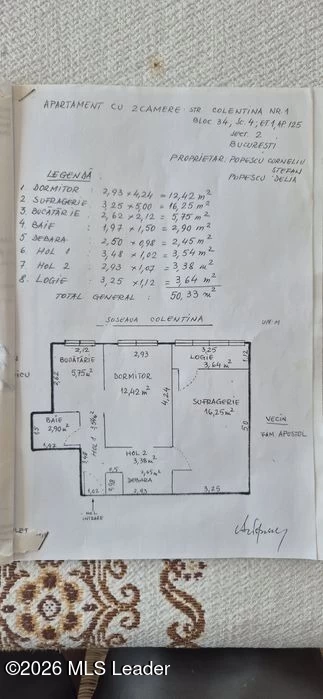 APARTAMENT CU 2 CAMERE STR. COLENTINA NR.1
BLOC 34, Sc. 4, ET 1, AP 125
Sect. 2
BUCURESTI
PROPRIETAR: POPESCU CORNELIU
STEFAN
POPESCU DELIA
LEGENDĂ
1 DORMITOR : 2,93 × 4,24 = 12,42 m²
2 SUFRAGERIE : 3,25 × 5,00 = 16,25 m²
3. BUCĂTĂRIE : 2,62 × 2,12 = 5,75 m²
4. BAIE : 1,97 × 1,50 = 2,90 m²
5 DEBARA : 2,50 × 0,98 = 2,45 m²
6. HOL 1 : 3,48 × 1,02 = 3,54 m²
7 HOL 2 : 2,93 × 1,07 = 3,38 m²
8. LOGIE : 3,25 × 1,12 = 3,64 m²
TOTAL GENERAL : 50,33 m²
SOSEAUA COLENTINA
2,12
2,93
3,25
BUCĂTĂRIE
5,75 m²
2,62
DORMITOR
12,42 m²
4,24
LOGIE
3,64 m²
1,12
SUFRAGERIE
16,25 m²
5,0
VECIN
FAM APOSTOL
BAIE
2,90 m²
1,5
1,97
HOL 1
HOL 2
3,38 m²
2,45 m²
DEBARA
1,02
2,93
3,25
INTRARE
©2026 MLS Leader